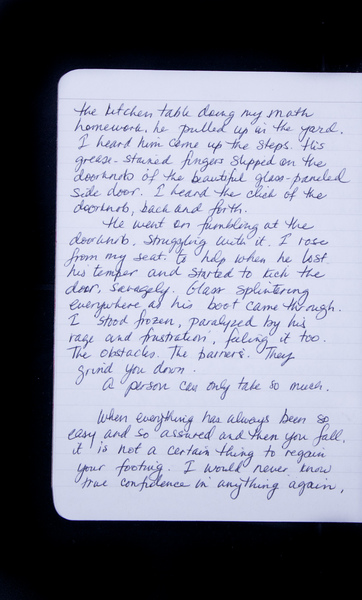 the kitchen table doing my math
homework, he pulled up in the yard.
I heard him come up the steps. His
grease-stained fingers slipped on the
doorknob of the beautiful glass-paneled
side door. I heard the click of the
doorknob, back and forth.
He went on fumbling at the
doorknob, struggling with it. I rose
from my seat to help when he lost
his temper and started to kick the
door, savagely. Glass splintering
everywhere as his boot came through.
I stood frozen, paralyzed by his
rage and frustration, feeling it too.
The obstacles. The barriers. They
grind you down.
A person can only take so much.
When everything has always been so
easy and so assured and then you fall,
it is not a certain thing to regain
your footing. I would never know
true confidence in anything again.